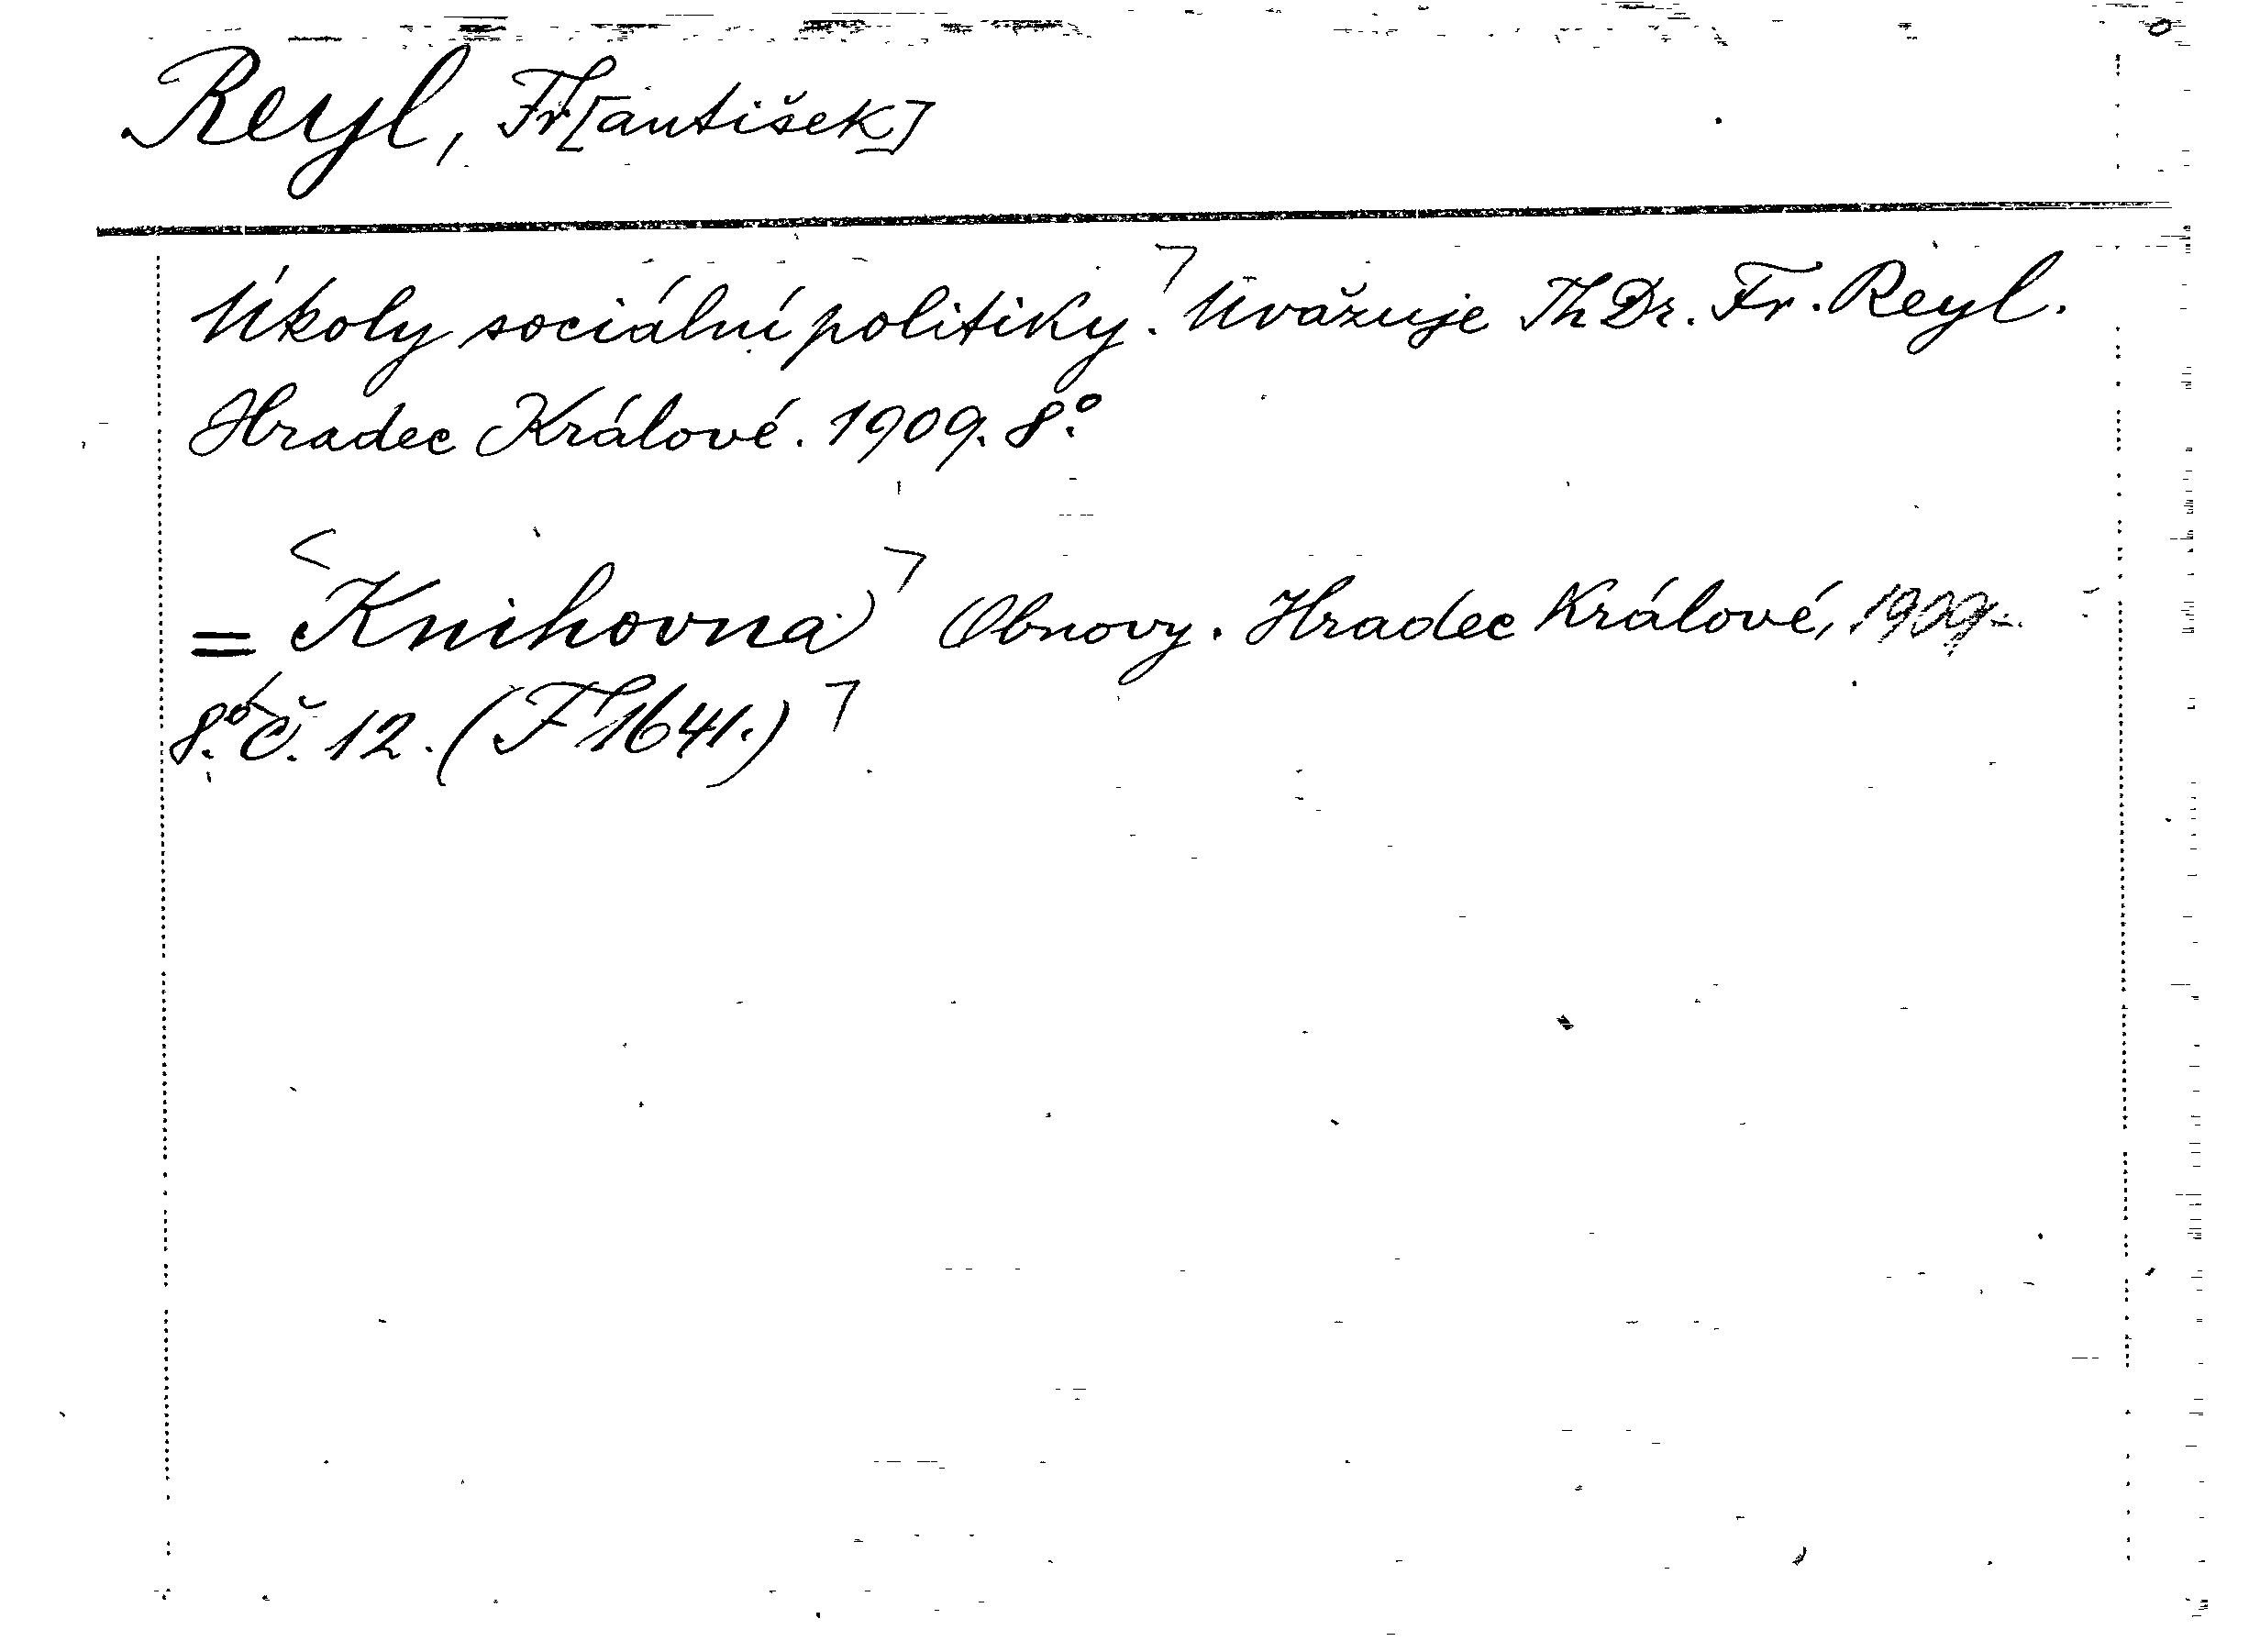 Reyl, Fr[antišek]
Úkoly sociální politiky. Uvažuje ThDr. Fr. Reyl.
Hradec Králové. 1909. 8°.
= Knihovna Obnovy. Hradec Králové, 1909-.
8°. Č. 12. (F 1641.)